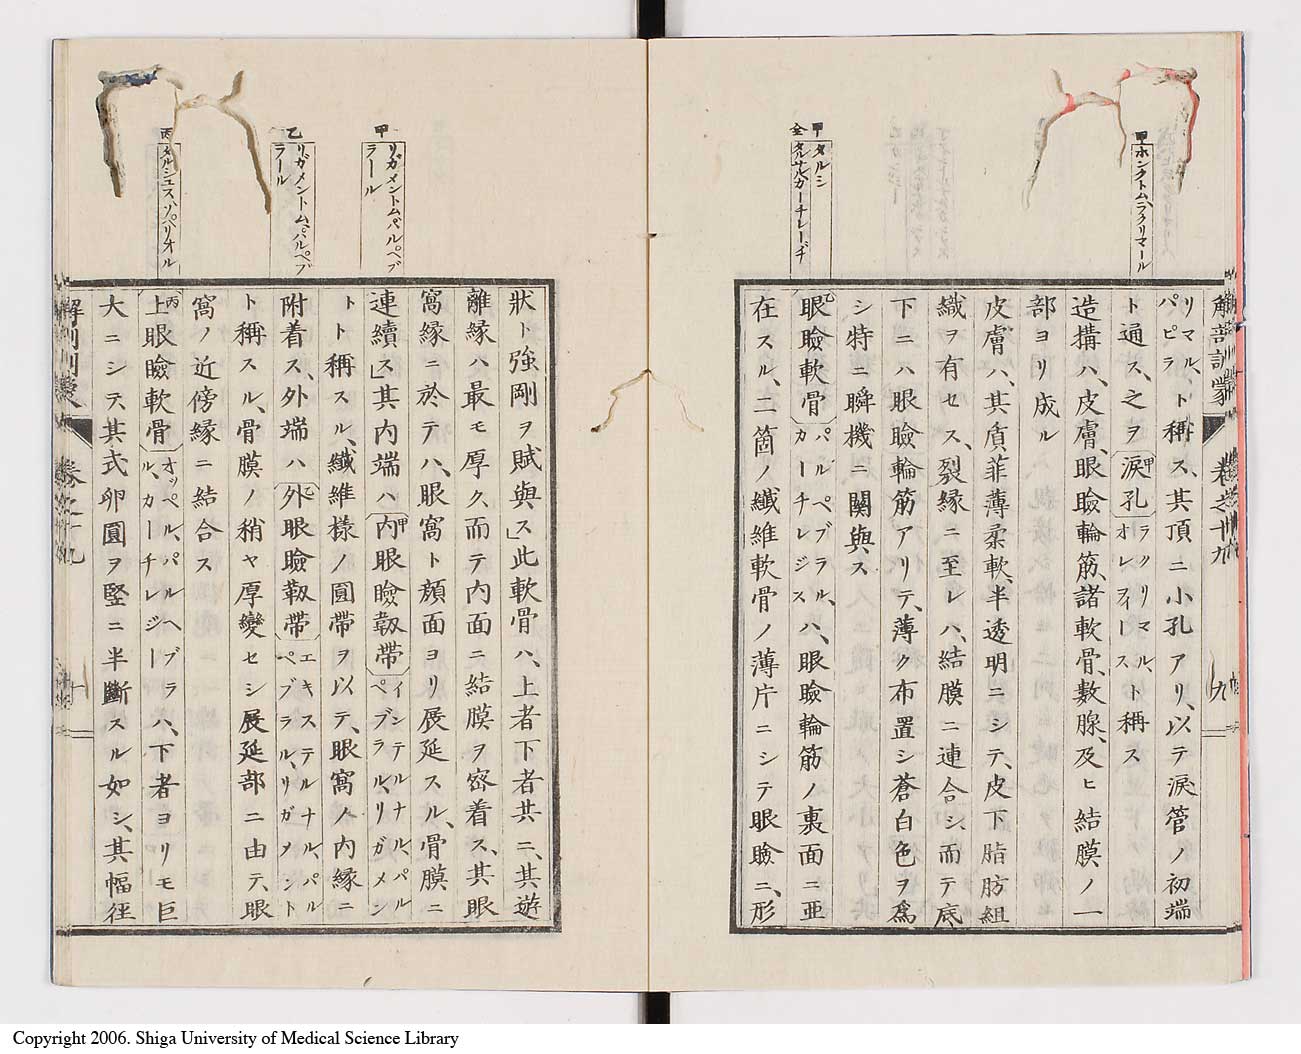 甲ホンクトム、ラクリマール
甲タルシ
仝タルサルカーチレーヂ
解剖訓蒙
卷之十九
九
リマル、パピラト稱ス、其頂ニ小孔アリ、以テ淚管ノ初端
ト通ス、之ヲ甲淚孔ラクリマル、オレフィースト稱ス
造搆ハ、皮膚、眼瞼輪筋、諸軟骨、數腺、及ヒ結膜ノ一
部ヨリ成ル
皮膚ハ、其質菲薄柔軟、半透明ニシテ、皮下脂肪組
織ヲ有セス、裂緣ニ至レハ、結膜ニ連合シ、而テ底
下ニハ眼瞼輪筋アリテ、薄ク布置シ蒼白色ヲ爲
シ特ニ瞬機ニ關與ス
乙眼瞼軟骨パルペブラル、カーチレジスハ、眼瞼輪筋ノ裏面ニ亜
在スル、二箇ノ纖維軟骨ノ薄片ニシテ眼瞼ニ、形
甲リガメントム、パルペブラール
乙リガメントム、パルペブラール
丙タルシュス、ソペリオル
狀ト強剛ヲ賦與ス」此軟骨ハ、上者下者共ニ、其遊
離緣ハ最モ厚ク、而テ內面ニ結膜ヲ密着ス、其眼
窩緣ニ於テハ、眼窩ト顏面ヨリ展延スル、骨膜ニ
連續ス」其內端ハ甲內眼瞼韌帶インテルナル、パルペブラル、リガメン
トト稱スル、纖維樣ノ圓帶ヲ以テ、眼窩ノ內緣ニ
附着ス、外端ハ乙外眼瞼韌帶エキステルナル、パルペブラル、リガメント
ト稱スル、骨膜ノ稍ヤ厚變セシ展延部ニ由テ、眼
窩ノ近傍緣ニ結合ス
丙上眼瞼軟骨オッペル、パルヘブラル、カーチレジーハ、下者ヨリモ巨
大ニシテ、其式卵圓ヲ竪ニ半斷スル如シ、其幅徑
卷之十九
十
Copyright 2006. Shiga University of Medical Science Library